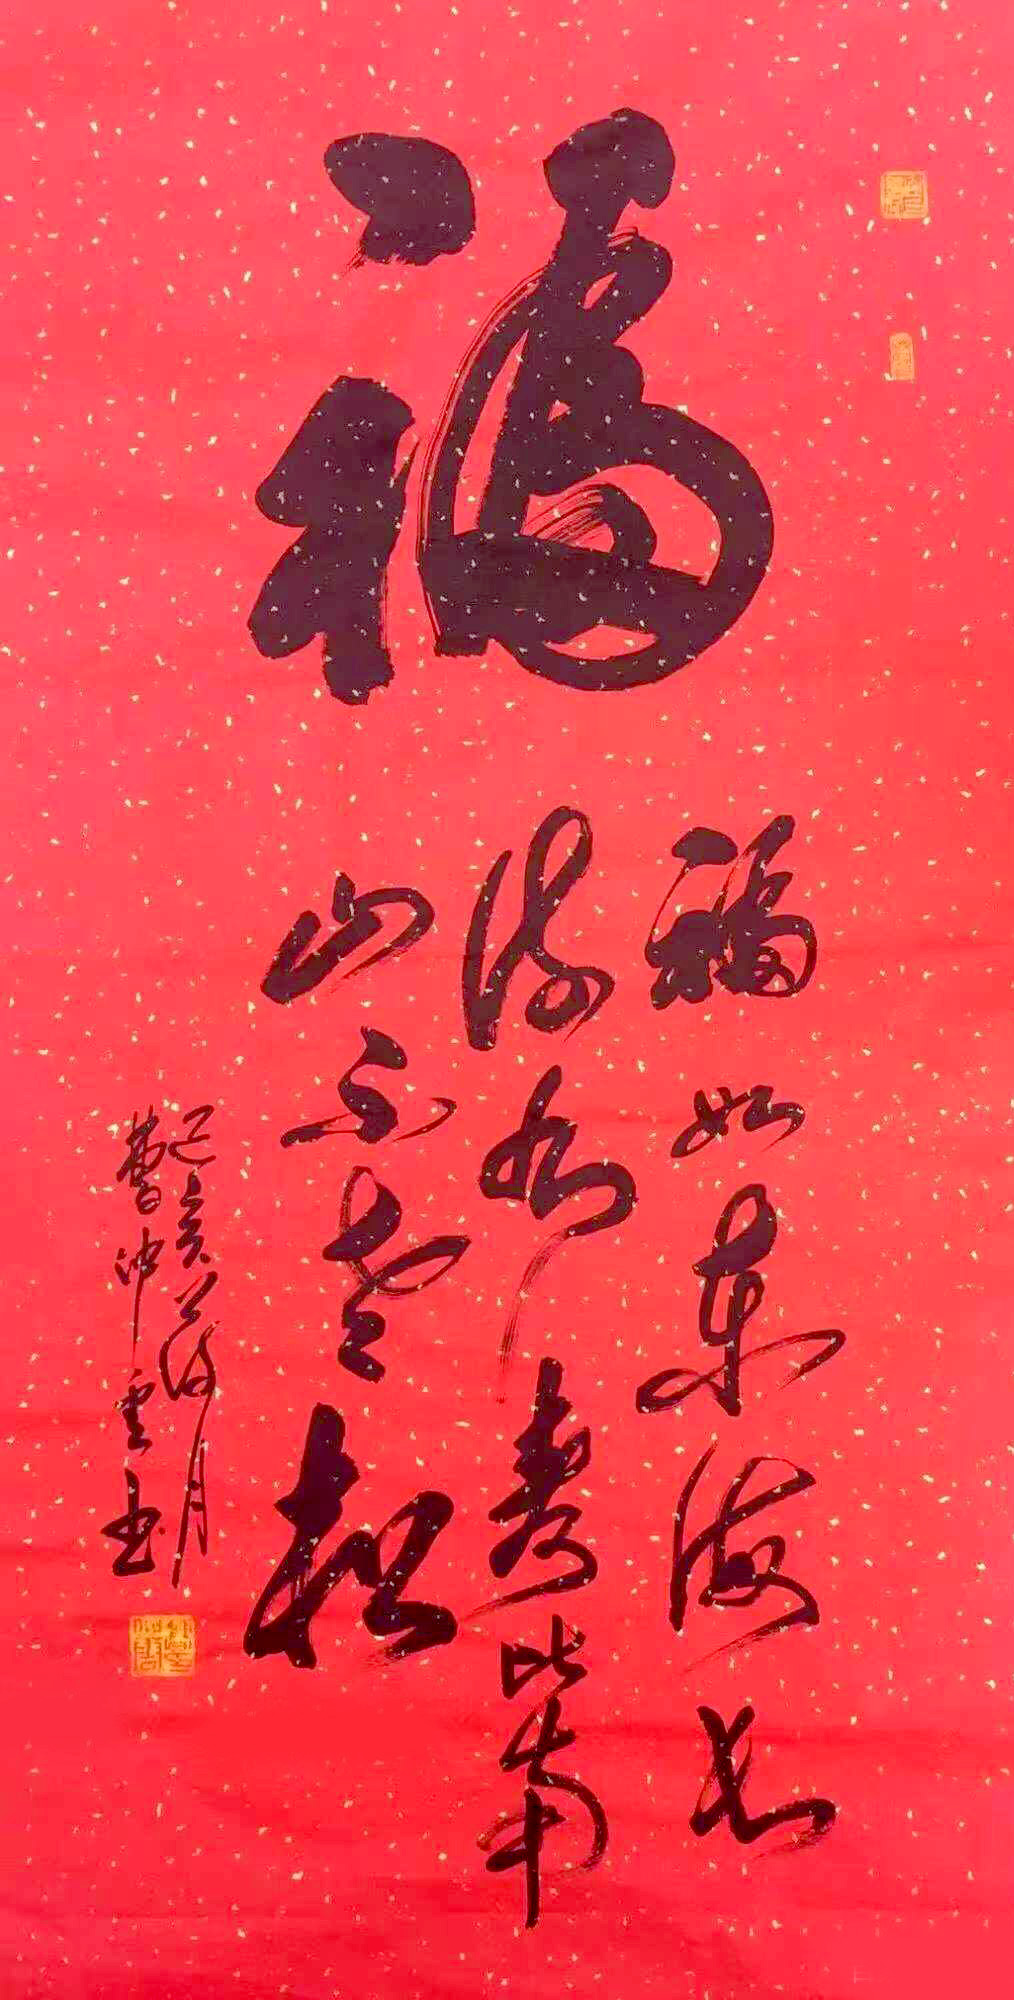 福
福如東海长
流水寿比南
山不老松
己亥 月
曹冲雲书